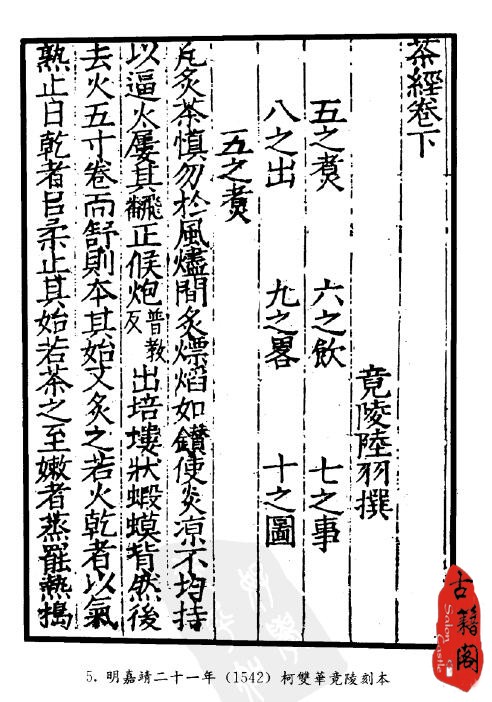 茶經卷下
竟陵陸羽撰
五之煑 六之飲 七之事
八之出 九之畧 十之圖
五之煑
凡炙茶慎勿於風燼間炙熛焰如鑽使炎凉不均持
以逼火屢其翻正候炮普教反出培塿狀蝦蟇背然後
去火五寸卷而舒則本其始又炙之若火乾者以氣
熟止日乾者以柔止其始若茶之至嫩者蒸罷熱搗
5. 明嘉靖二十一年（1542）柯雙華竟陵刻本
古籍阁
Salon
Castle